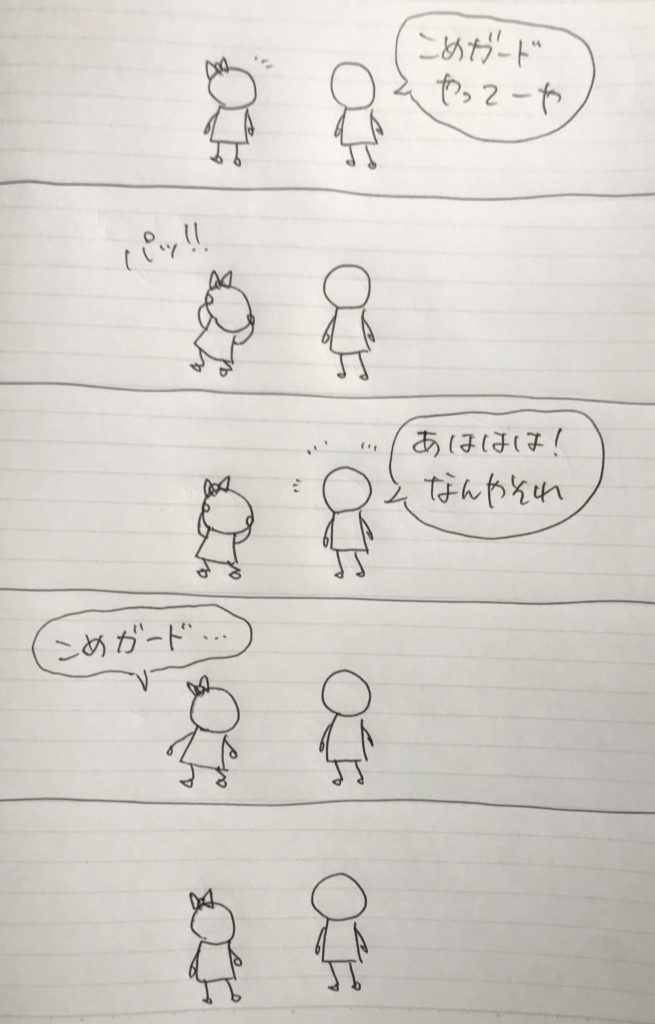 こめガード
やってーや
パッ!!
あははは!
なんやそれ
こめガード…